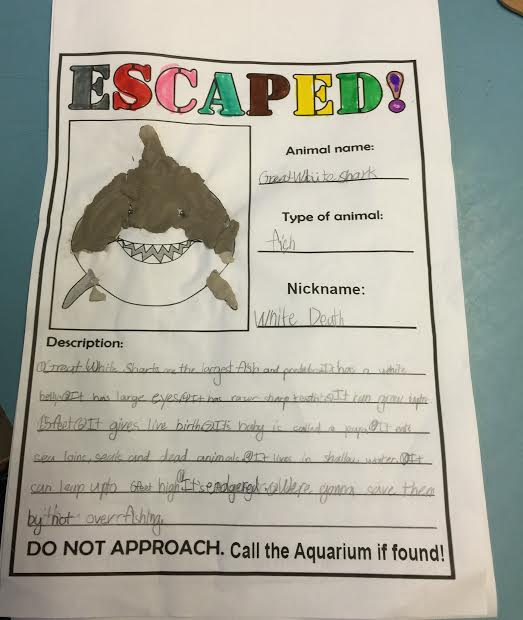 ESCAPED!
Animal name:
Great White shark
Type of animal:
fich
Nickname:
White Death
Description:
Great White Sharks are the largest fish and It has a white
belly It has large eyes It has razer sharp teeth It can grow upto
15feet It gives live birth It's baby is called a pup It eats
sea lions, seals and dead animals It lives in shallow It
can leap upto 6feet high It's We're gonna save them
by not overfishing.
DO NOT APPROACH. Call the Aquarium if found!